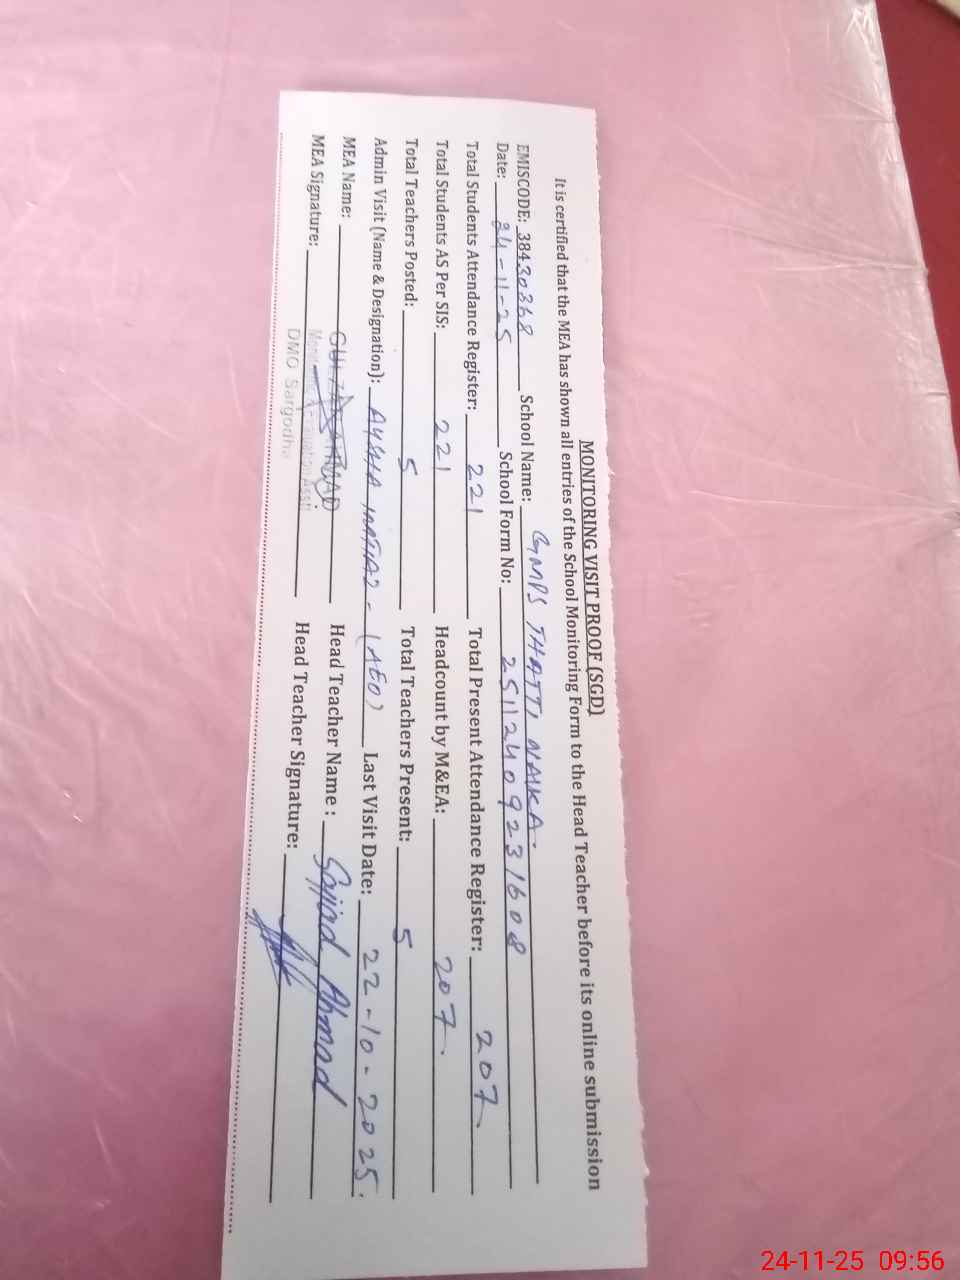 MONITORING VISIT PROOF (SGD)
It is certified that the MEA has shown all entries of the School Monitoring Form to the Head Teacher before its online submission
EMISCODE: 38430368 School Name: GMPS THATTI NAIKA.
Date: 24-11-25 School Form No: 251124092316 08
Total Students Attendance Register: 221 Total Present Attendance Register: 207
Total Students AS Per SIS: 221 Headcount by M&EA: 207
Total Teachers Posted: 5 Total Teachers Present: 5
Admin Visit (Name & Designation): AYSHA IMTIAZ - (AEO) Last Visit Date: 22-10-2025.
MEA Name: GULZAR AHMAD Head Teacher Name : Sajjad Ahmad
MEA Signature: Head Teacher Signature:
DMO Sargodha
24-11-25 09:56